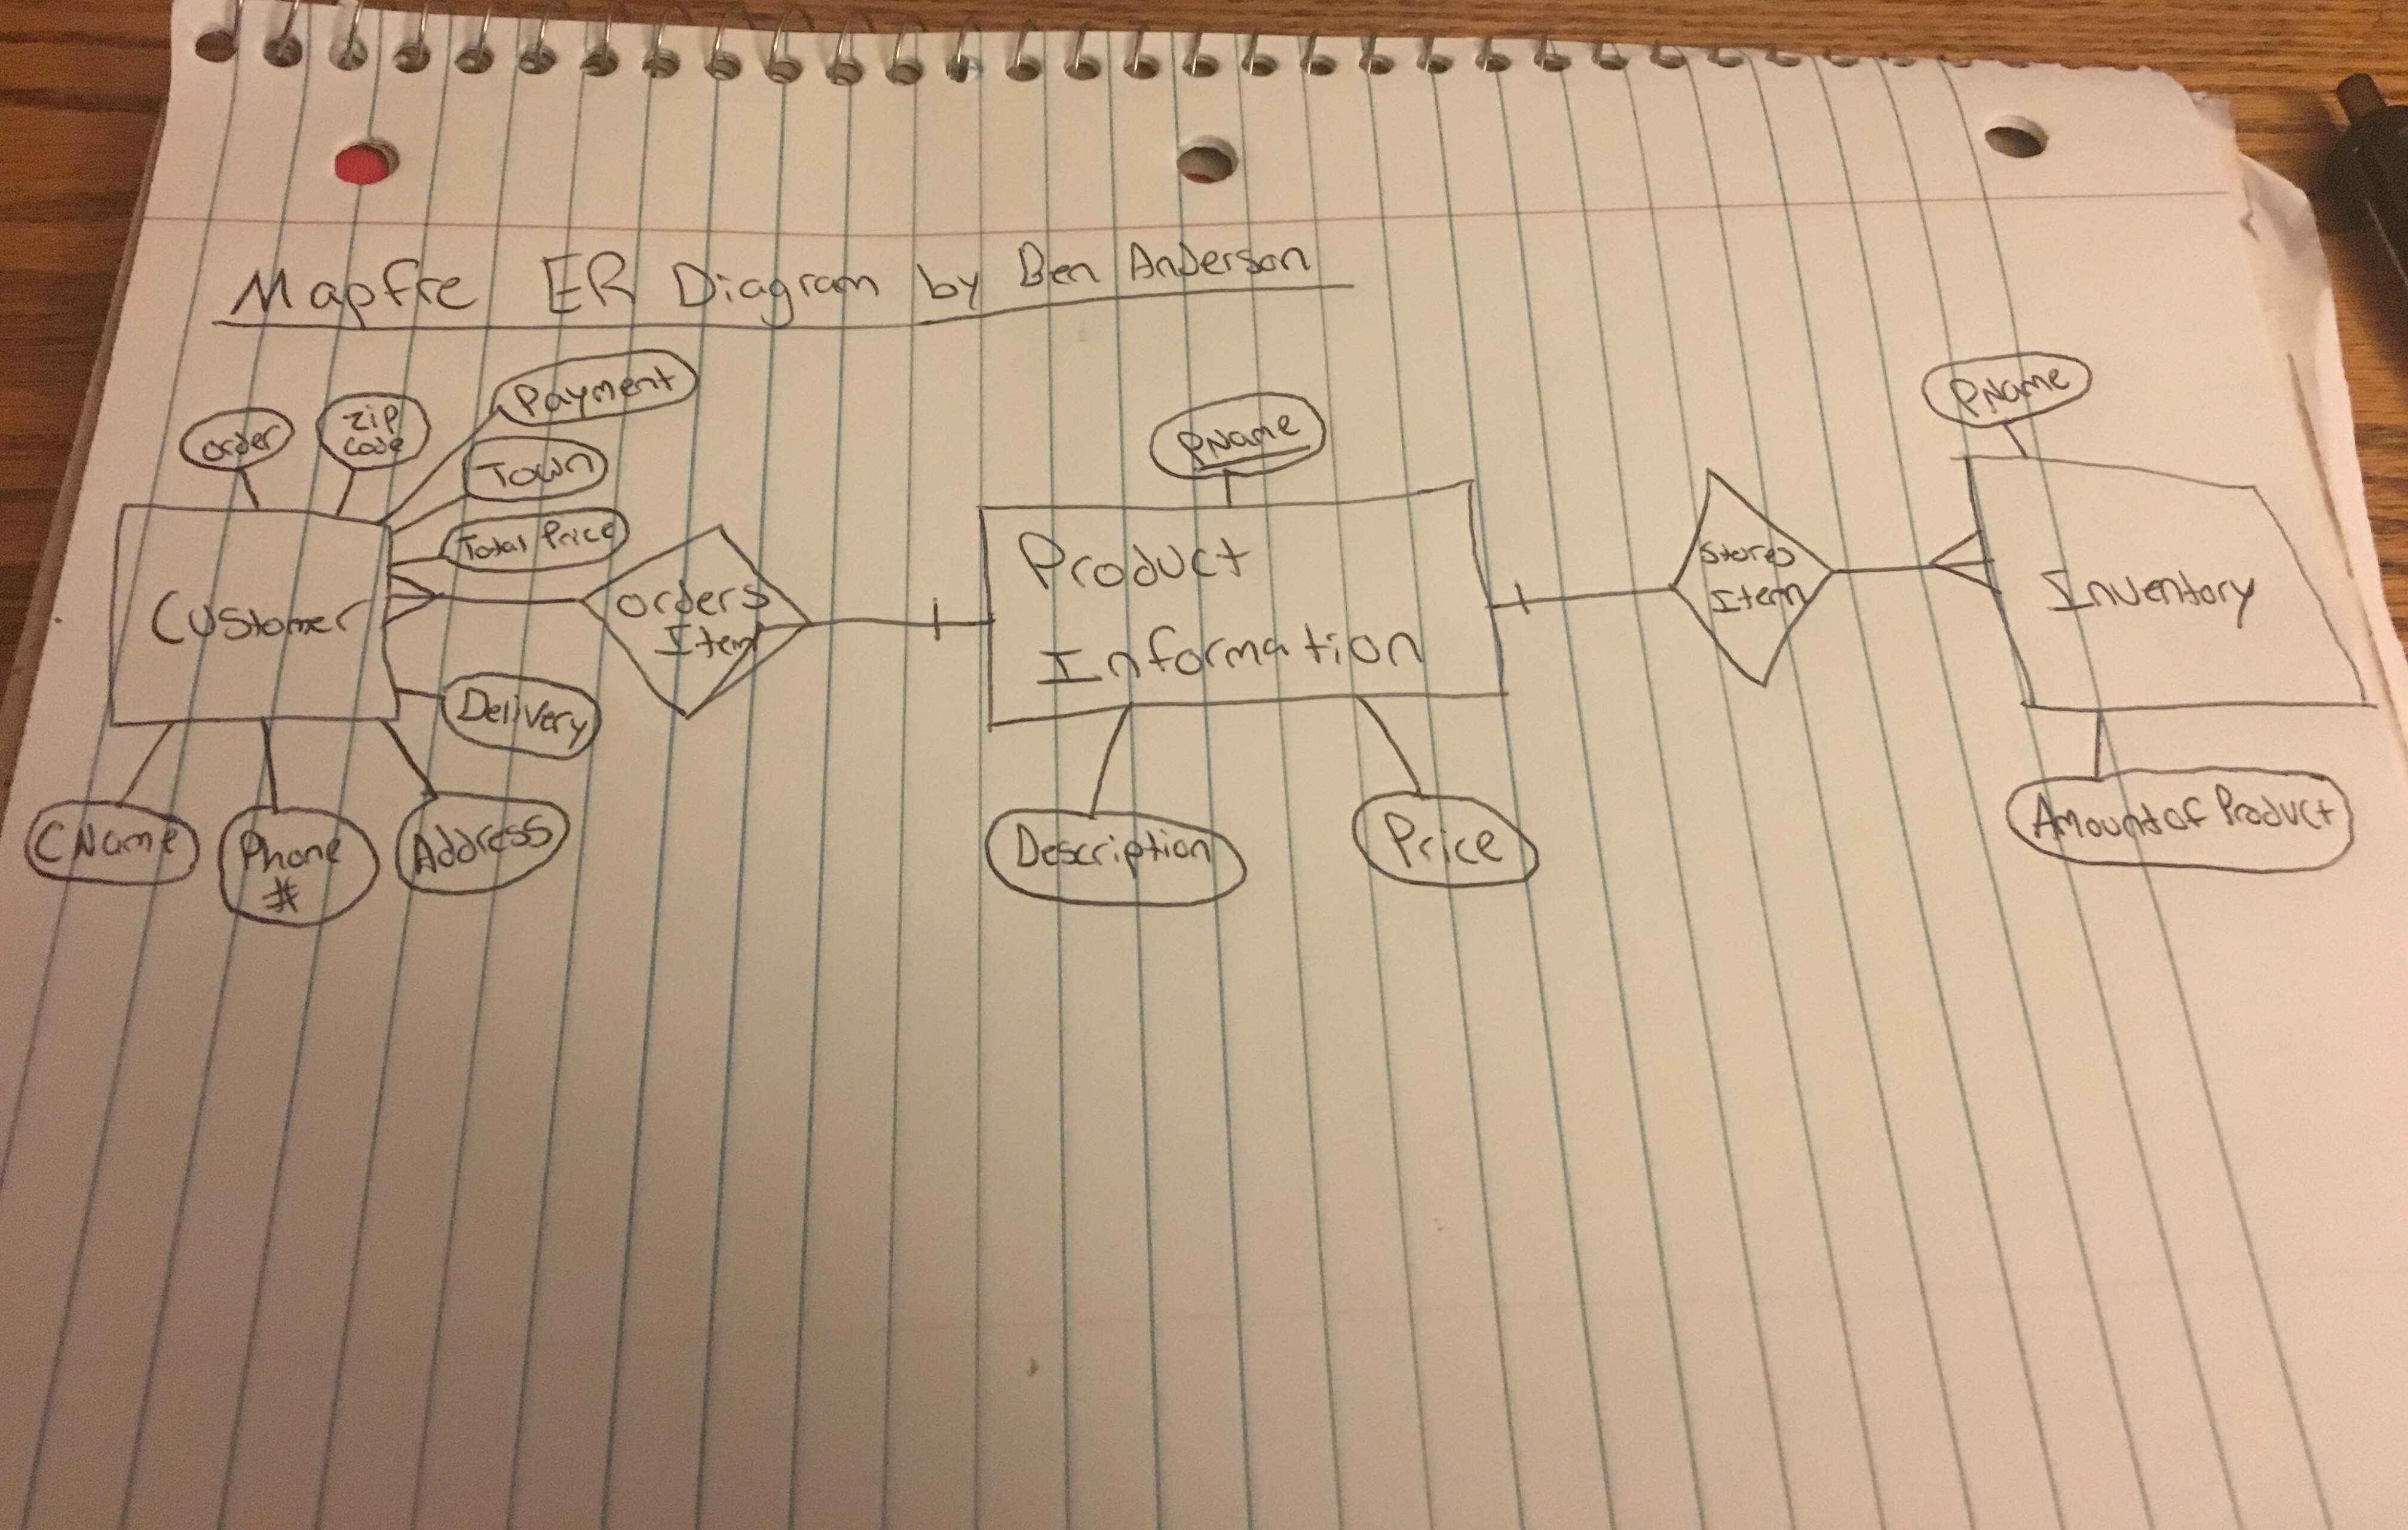 Mapfre ER Diagram by Ben Anderson
Order
Zip
Code
Payment
Town
Total Price
Customer
Orders
Item
Delivery
CName
Phone
#
Address
PName
Product
Information
Description
Price
Stores
Item
PName
Inventory
Amount of Product